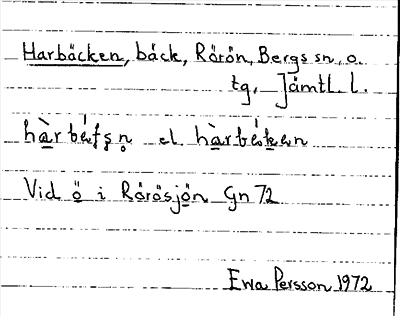 Harbäcken, bäck, Rörön, Bergs sn, o.
tg, Jämtl. l.
el.
Vid ö i Rörösjön Gn 72
Ewa Persson 1972